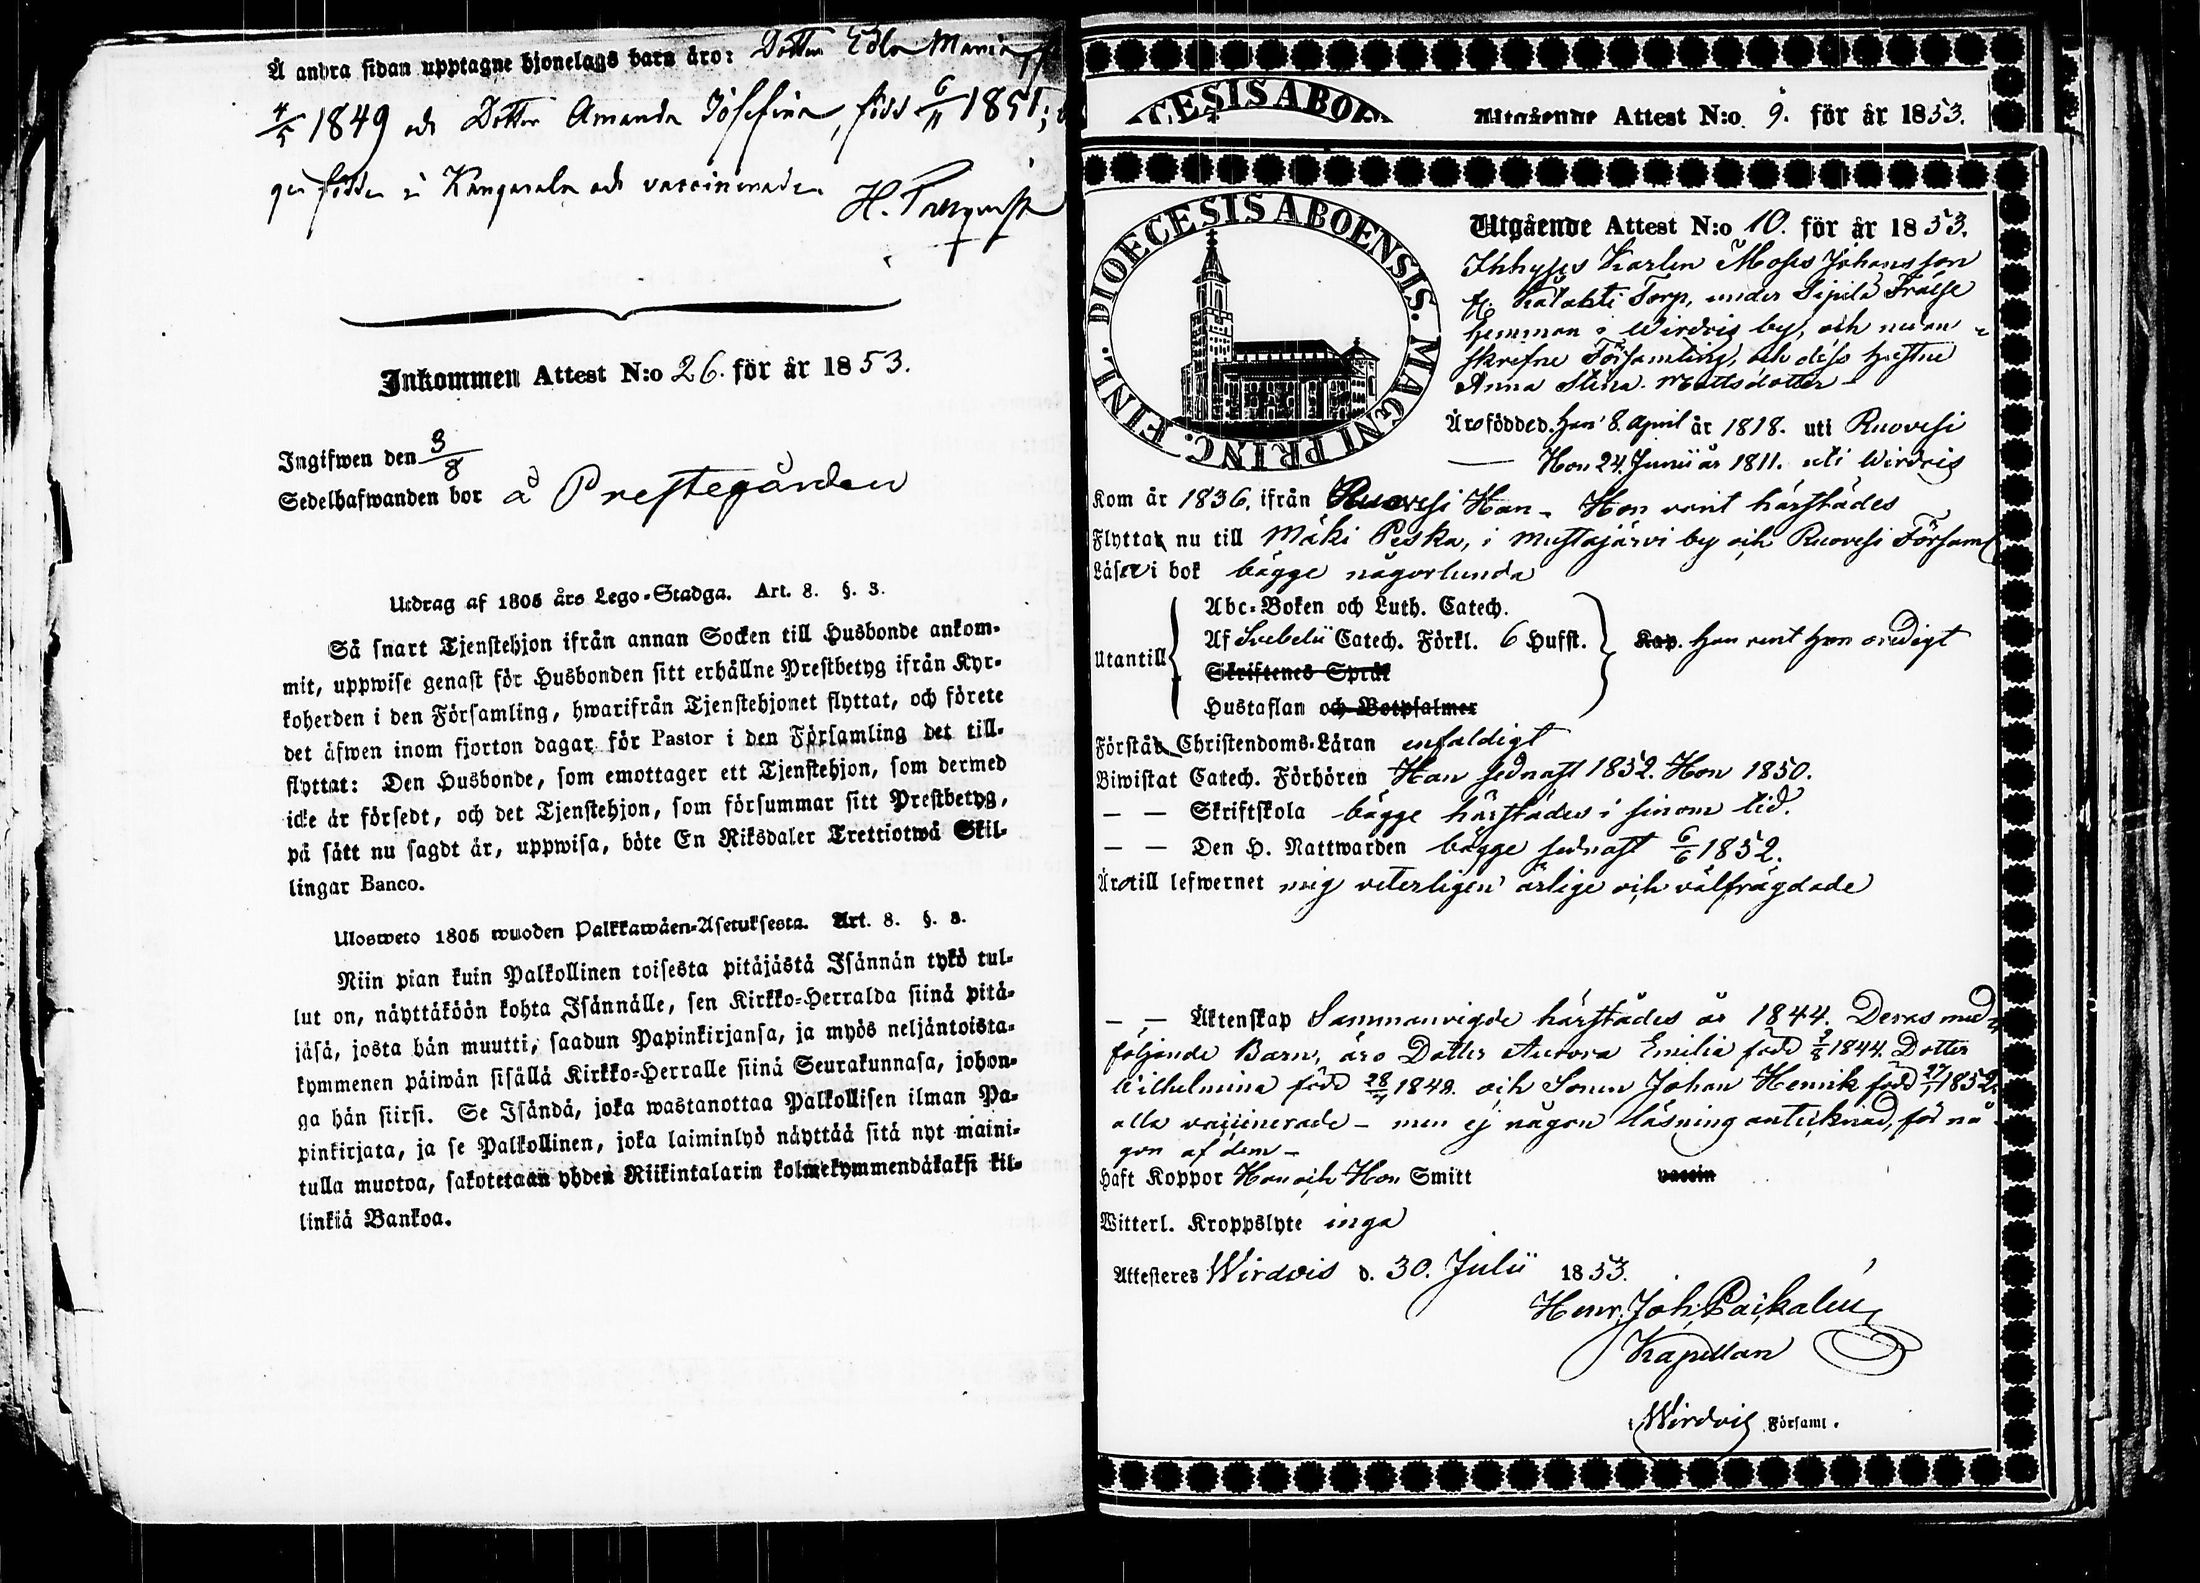 Å andra sidan upptagne hjonelags barn äro: Dotter Edla Maria
4/5 1849 och Dotter Amanda Josefina, född 6/11 1851;
födde i Kangasala och vaccinerade.
H.
Inkommen Attest N:o 26. för år 1853.
Ingifwen den 3/8
Sedelhafwanden bor å Prestegården
Utdrag af 1805 års Lego-Stadga. Art. 8. §. 3.
Så snart Tjenstehjon ifrån annan Socken till Husbonde ankom-
mit, uppwise genast för Husbonden sitt erhållne Prestbetyg ifrån Kyr-
koherden i den Församling, hwarifrån Tjenstehjonet flyttat, och förete
det äfwen inom fjorton dagar för Pastor i den Församling det till-
flyttat: Den Husbonde, som emottager ett Tjenstehjon, som dermed
icke är försedt, och det Tjenstehjon, som försummar sitt Prestbetyg,
på sätt nu sagdt är, uppwisa, böte En Riksdaler Trettiotwå Skil-
lingar Banco.
Ulosweto 1805 wuoden Palkkawäen-Asetuksesta. Art. 8. §. 3.
Niin pian kuin Palkollinen toisesta pitäjästä Isännän tykö tul-
lut on, näyttäköön kohta Isännälle, sen Kirkko-Herralda siinä pitä-
jäsä, josta hän muutti, saadun Papinkirjansa, ja myös neljäntoista-
kymmenen päiwän sisällä Kirkko-Herralle siinä Seurakunnasa, johon-
ga hän siirsi. Se Isändä, joka wastanottaa Palkollisen ilman Pa-
pinkirjata, ja se Palkollinen, joka laiminlyö näyttää sitä nyt maini-
tulla muotoa, sakotetaan yhden Riikintalarin kolmekymmendäkaksi kil-
linkiä Bankoa.
CESIS ABOE
Utgående Attest N:o 9. för år 1853.
DIOECESIS ABOENSIS. MAGNI PRINC. FINL.
Utgående Attest N:o 10. för år 1853.
Inhyses Karlen Moses Johansson
fr. Torp, under Sipilä Frälse
hemman i Wirdois by, och
skrefne Församling, och dess hustru
Anna Stina Mattsdotter
Äro födde d. Han 8. April år 1818. uti Ruovesi
— Hon 24. Junii år 1811. uti Wirdois
Kom år 1836. ifrån Ruovesi Han - Hon varit härstädes
Flytta nu till Mäki Peska, i Mustajärvi by och Ruovesi Församl
Läsa i bok bägge någorlunda
Utantill
Abc-Boken och Luth. Catech.
Af Svebelii Catech. Förkl. 6 Hufst. Kap. han rent hon oredigt
Skriftenes Språk
Hustaflan och Botpsalmer
Förstå Christendoms-Läran enfaldigt
Biwistat Catech. Förhören Han sednast 1852. Hon 1850.
— — Skriftskola bägge härstädes i sinom tid.
— — Den H. Nattwarden bägge sednast 6/6 1852.
Äro till lefwernet mig veterligen ärlige och välfrägdade
— — Äktenskap Sammanvigde härstädes år 1844. Deras med-
följande Barn, äro Dotter Aurora Emilia född 1844. Dotter
Wilhelmina född 1848. och Sonen Johan Henrik född 1852.
alla vaccinerade - men ej någon läsning antecknad, för nå-
gon af dem -
Haft Koppor Han och Hon Smitt vaccin
Witterl. Kroppslyte inga
Attesteres Wirdois d. 30. Julii 1853.
Henr. Joh. Paikalén
Kapellan
Wirdois Församl.